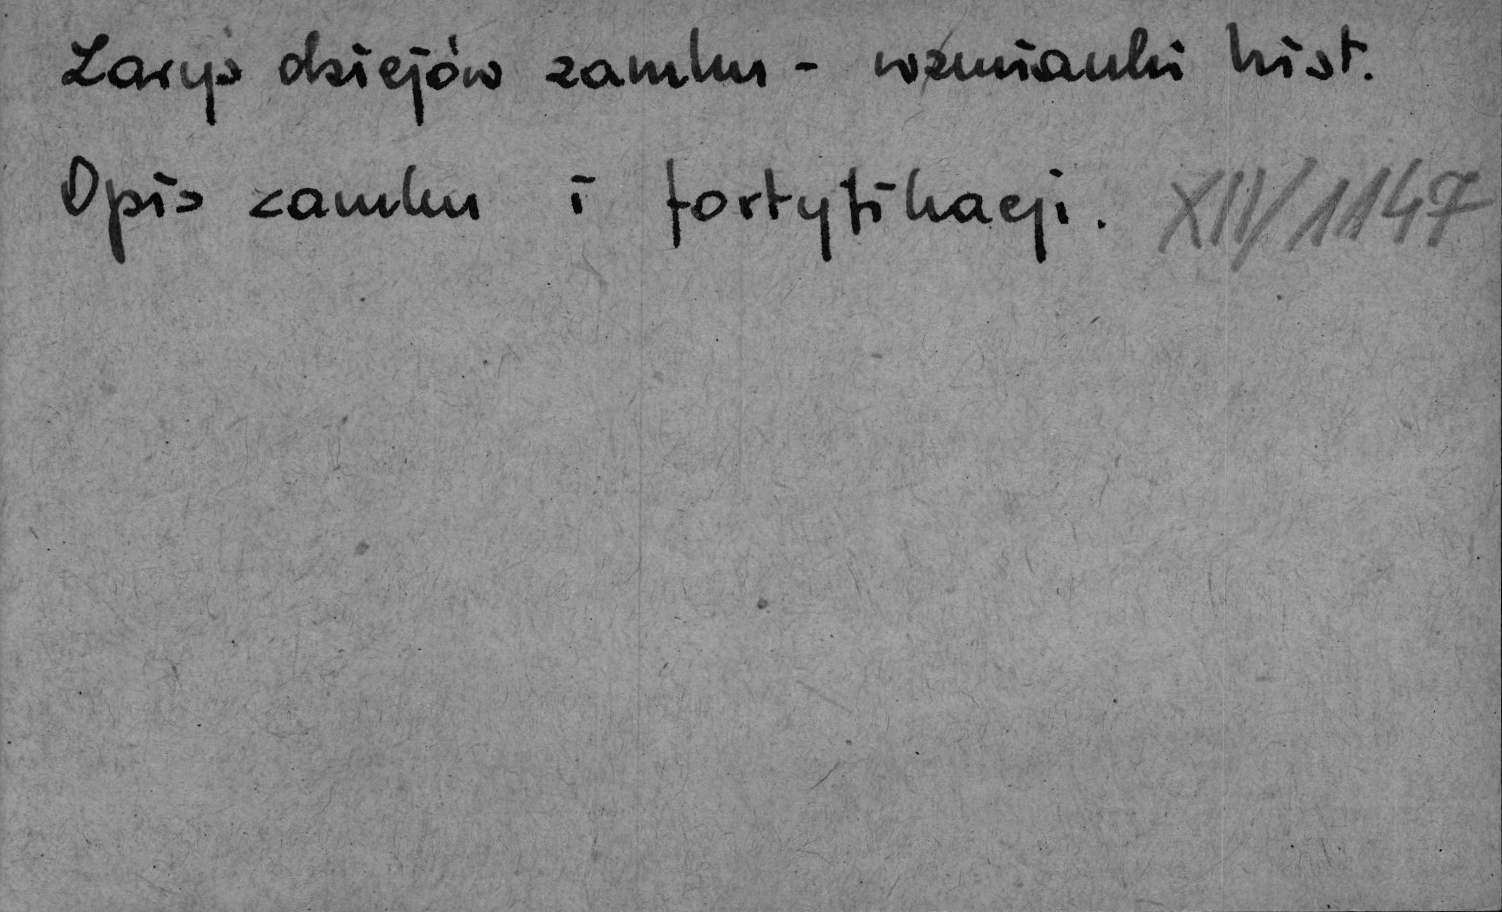 Zaryś dziejów zamku - wzmianki hist.
Opis zamku i fortyfikacji. XIV/1147